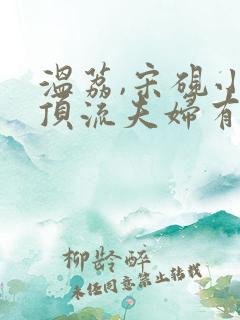 温荔,宋砚小
顶流夫妇有
柳龄醉
未经同意禁止转载